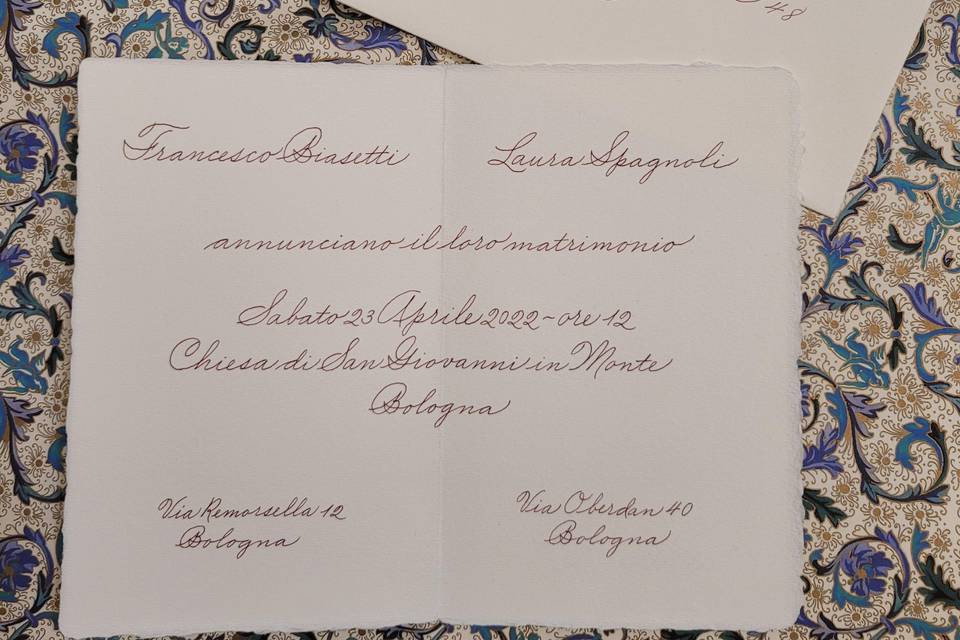 48
Francesco Biasetti Laura Spagnoli
annunciano il loro matrimonio
Sabato 23 Aprile 2022 ~ ore 12
Chiesa di San Giovanni in Monte
Bologna
Via Remorsella 12
Bologna
Via Oberdan 40
Bologna